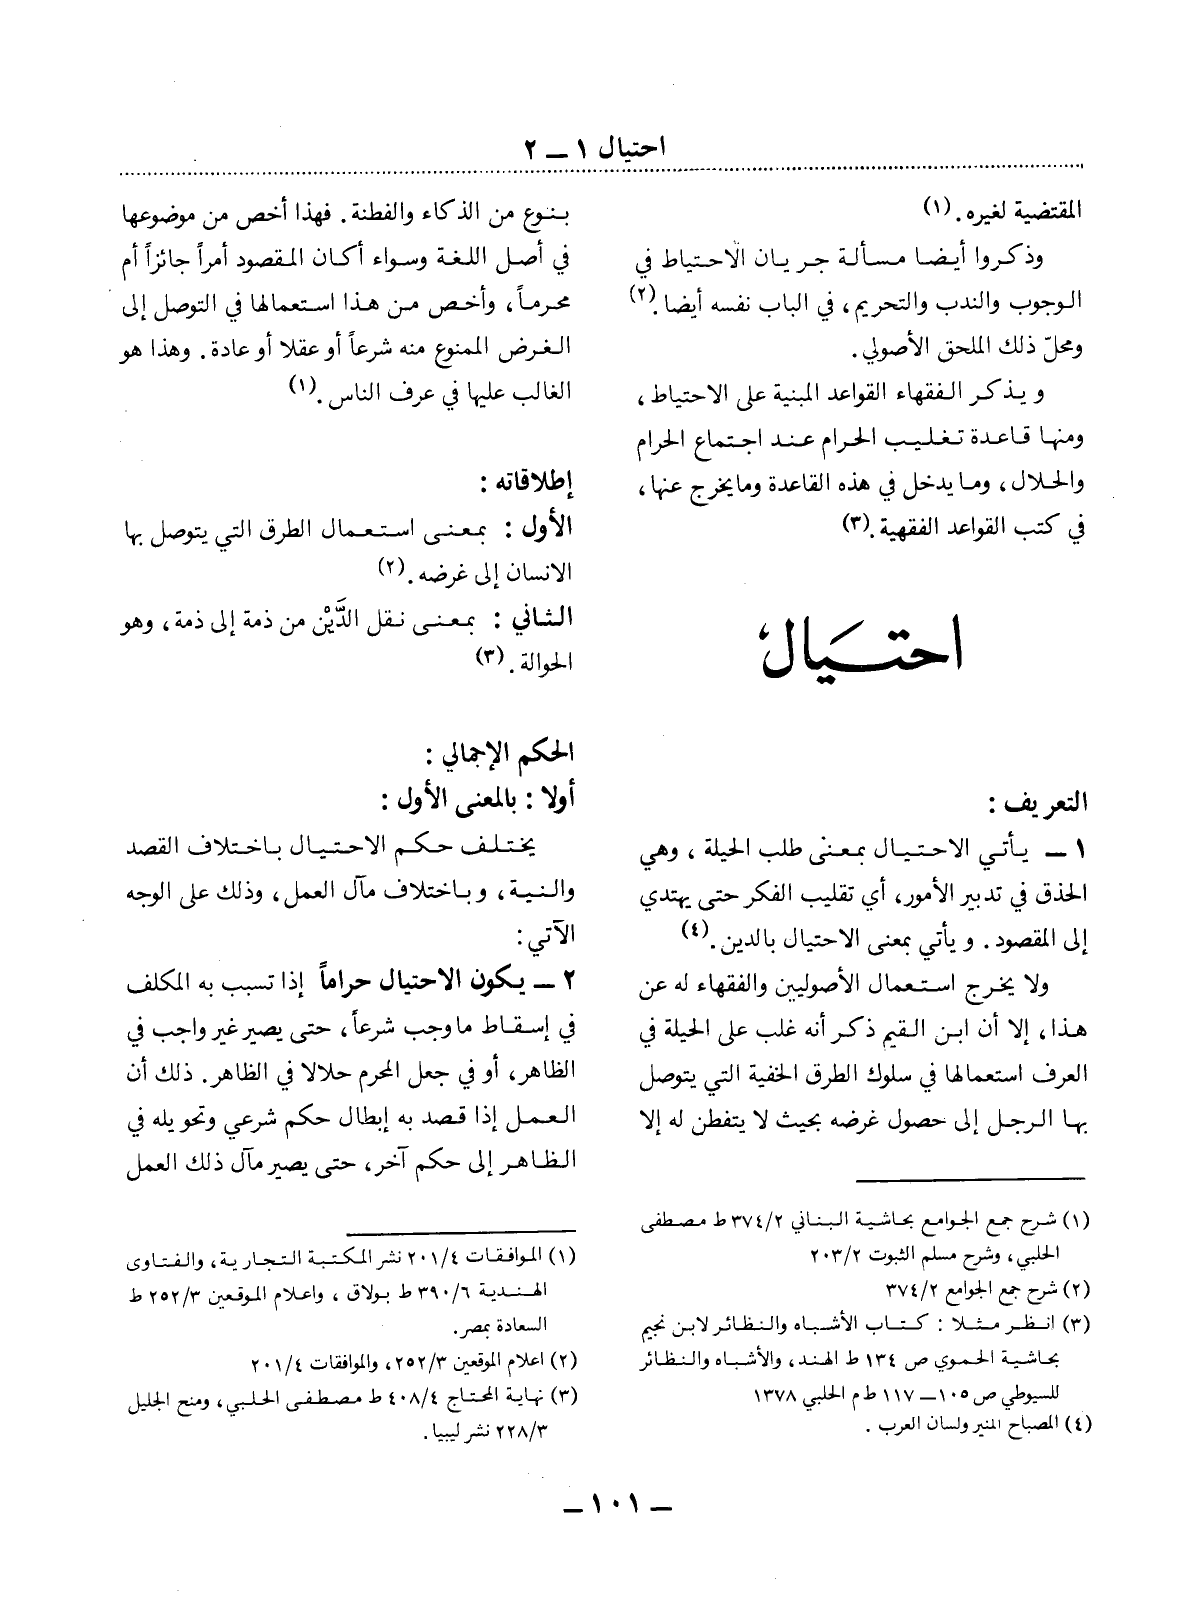 احتيال ١ ــ ٢
المقتضية لغيره. (١)
وذكروا أيضا مسألة جريان الاحتياط في
الوجوب والندب والتحريم، في الباب نفسه أيضا. (٢)
ومحلّ ذلك الملحق الأصولي.
ويذكر الفقهاء القواعد المبنية على الاحتياط،
ومنها قاعدة تغليب الحرام عند اجتماع الحرام
والحلال، وما يدخل في هذه القاعدة وما يخرج عنها،
في كتب القواعد الفقهية. (٣)
احتيال
التعريف :
١ ــ يأتي الاحتيال بمعنى طلب الحيلة ، وهي
الحذق في تدبير الأمور، أي تقليب الفكر حتى يهتدي
إلى المقصود. ويأتي بمعنى الاحتيال بالدين. (٤)
ولا يخرج استعمال الأصوليين والفقهاء له عن
هذا، إلا أن ابن القيم ذكر أنه غلب على الحيلة في
العرف استعمالها في سلوك الطرق الخفية التي يتوصل
بها الرجل إلى حصول غرضه بحيث لا يتفطن له إلا
(١) شرح جمع الجوامع بحاشية البناني ٢/ ٣٧٤ ط مصطفى
الحلبي، وشرح مسلم الثبوت ٢/ ٢٠٣
(٢) شرح جمع الجوامع ٢/ ٣٧٤
(٣) انظر مثلا : كتاب الأشباه والنظائر لابن نجيم
بحاشية الحموي ص ١٣٤ ط الهند، والأشباه والنظائر
للسيوطي ص ١٠٥ ــ ١١٧ ط م الحلبي ١٣٧٨
(٤) المصباح المنير ولسان العرب .
بنوع من الذكاء والفطنة. فهذا أخص من موضوعها
في أصل اللغة وسواء أكان المقصود أمراً جائزاً أم
محرماً، وأخص من هذا استعمالها في التوصل إلى
الغرض الممنوع منه شرعاً أو عقلا أو عادة. وهذا هو
الغالب عليها في عرف الناس. (١)
إطلاقاته :
الأول : بمعنى استعمال الطرق التي يتوصل بها
الانسان إلى غرضه. (٢)
الثاني : بمعنى نقل الدَّيْن من ذمة إلى ذمة، وهو
الحوالة. (٣)
الحكم الإجمالي :
أولا : بالمعنى الأول :
يختلف حكم الاحتيال باختلاف القصد
والنية، وباختلاف مآل العمل، وذلك على الوجه
الآتي :
٢ ــ يكون الاحتيال حراماً إذا تسبب به المكلف
في إسقاط ما وجب شرعاً، حتى يصير غير واجب في
الظاهر، أو في جعل المحرم حلالا في الظاهر. ذلك أن
العمل إذا قصد به إبطال حكم شرعي وتحويله في
الظاهر إلى حكم آخر، حتى يصير مآل ذلك العمل
(١) الموافقات ٤/ ٢٠١ نشر المكتبة التجارية، والفتاوى
الهندية ٦/ ٣٩٠ ط بولاق ، واعلام الموقعين ٣/ ٢٥٢ ط
السعادة بمصر.
(٢) اعلام الموقعين ٣/ ٢٥٢، والموافقات ٤/ ٢٠١
(٣) نهاية المحتاج ٤/ ٤٠٨ ط مصطفى الحلبي، ومنح الجليل
٣/ ٢٢٨ نشر ليبيا.
ــ ١٠١ ــ